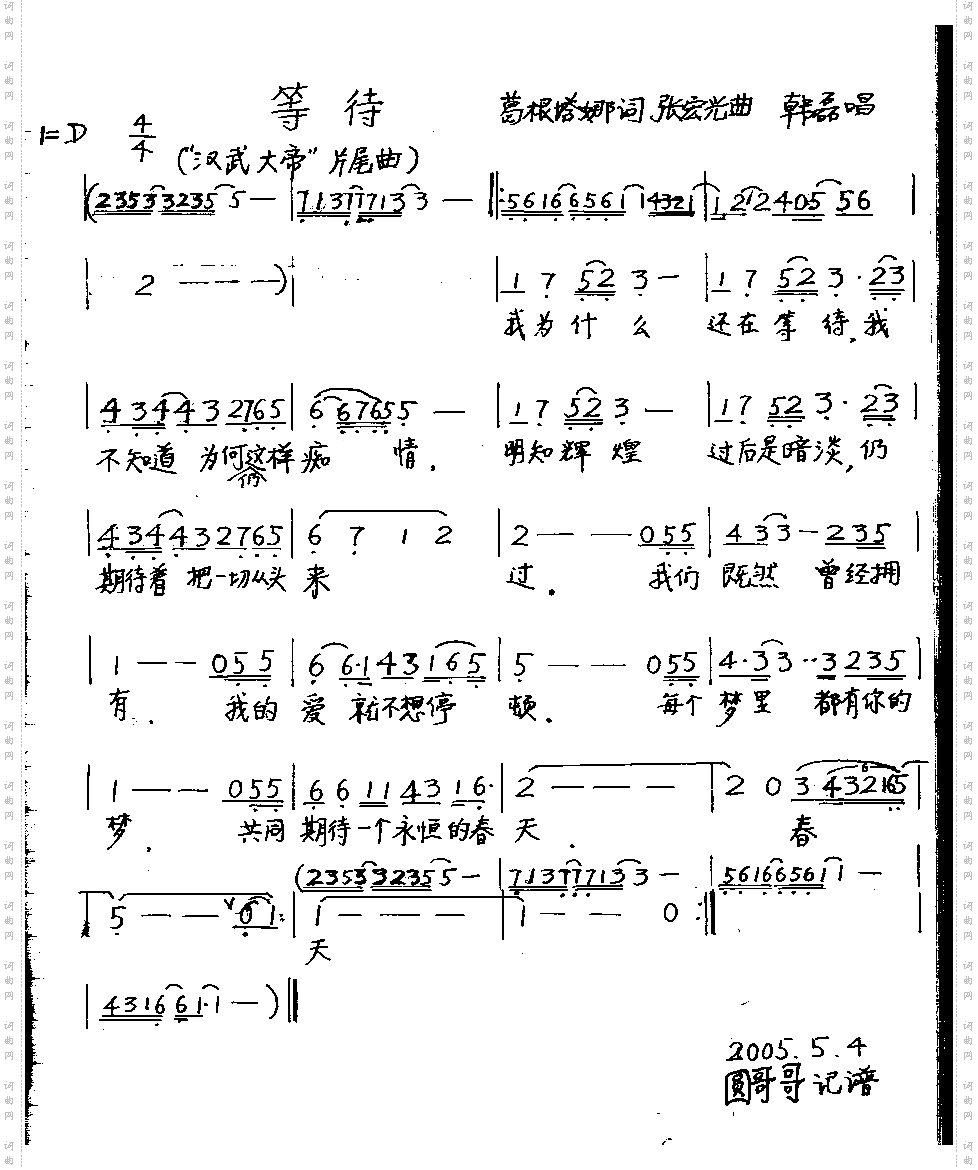 等待
葛根塔娜词 张宏光曲 韩磊唱
1=D 4/4
("汉武大帝"片尾曲)
|(23533235 5 — |71377133 — ‖:56166561 1 4321 |1 212 405 56 |
| 2 — — — )| |1 7 52 3 — |1 7 52 3 · 23|
我为什么 还在等待,我
|4 34 43 2765 |6 67655 — |17 52 3 — |17 52 3 · 23|
不知道 为何这样痴 情. 明知辉煌 过后是暗淡,仍
|434432765|6 7 1 2 2 — — 055|433—235|
期待着 把一切从头 来 过. 我们 既然 曾经拥
|1 — — 055|6 6·143165|5 — — 055|4·33··3235|
有. 我的 爱 就不想停 顿. 每个 梦里 都有你的
|1 — — 055|66 11 43 16·|2 — — — |2 0 3 432165|
6
梦. 共同 期待一个永恒的春 天. 春
(23533235 5 — |71377133 3 — |56166561 1 — |
|5 — — 01:|1 — — — |1 — — 0 :‖ |
天
|43166 1·1 — )‖
2005.5.4
圆哥哥记谱
词曲网